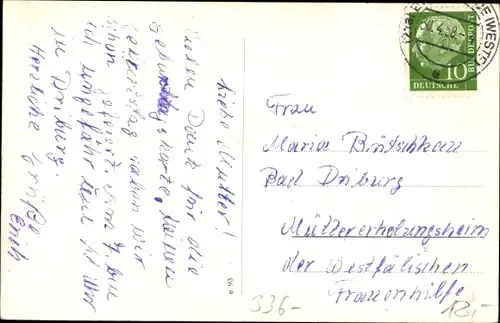 Liebe Mutter!
Vielen Dank für die
Geburtstagskarte. Meinen
Geburtstag haben wir
schon gefeiert. Am 7. bin
ich ungefähr um 11 Uhr
in Driburg.
Herzliche Grüße
Erich.
10
DEUTSCHE
BUNDESPOST
(WESTF)
Frau
Maria
Bad Driburg
Müttererholungsheim
der Westfälischen
Frauenhilfe
336-
12,-